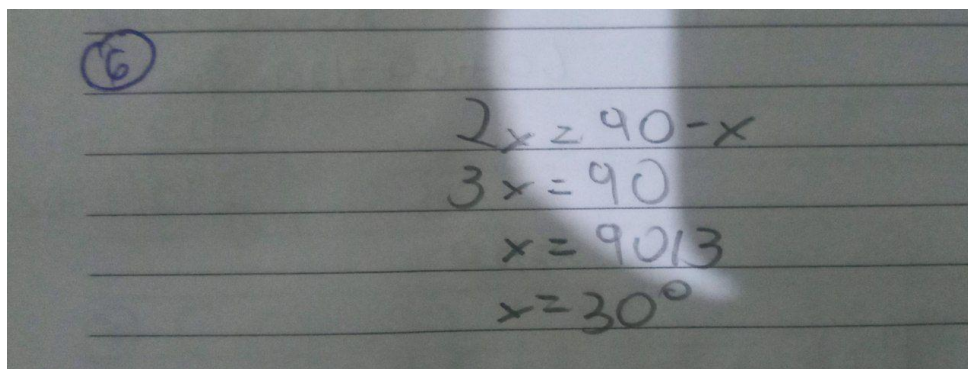 6
2x = 90-x
3x = 90
x = 90/3
x = 30°